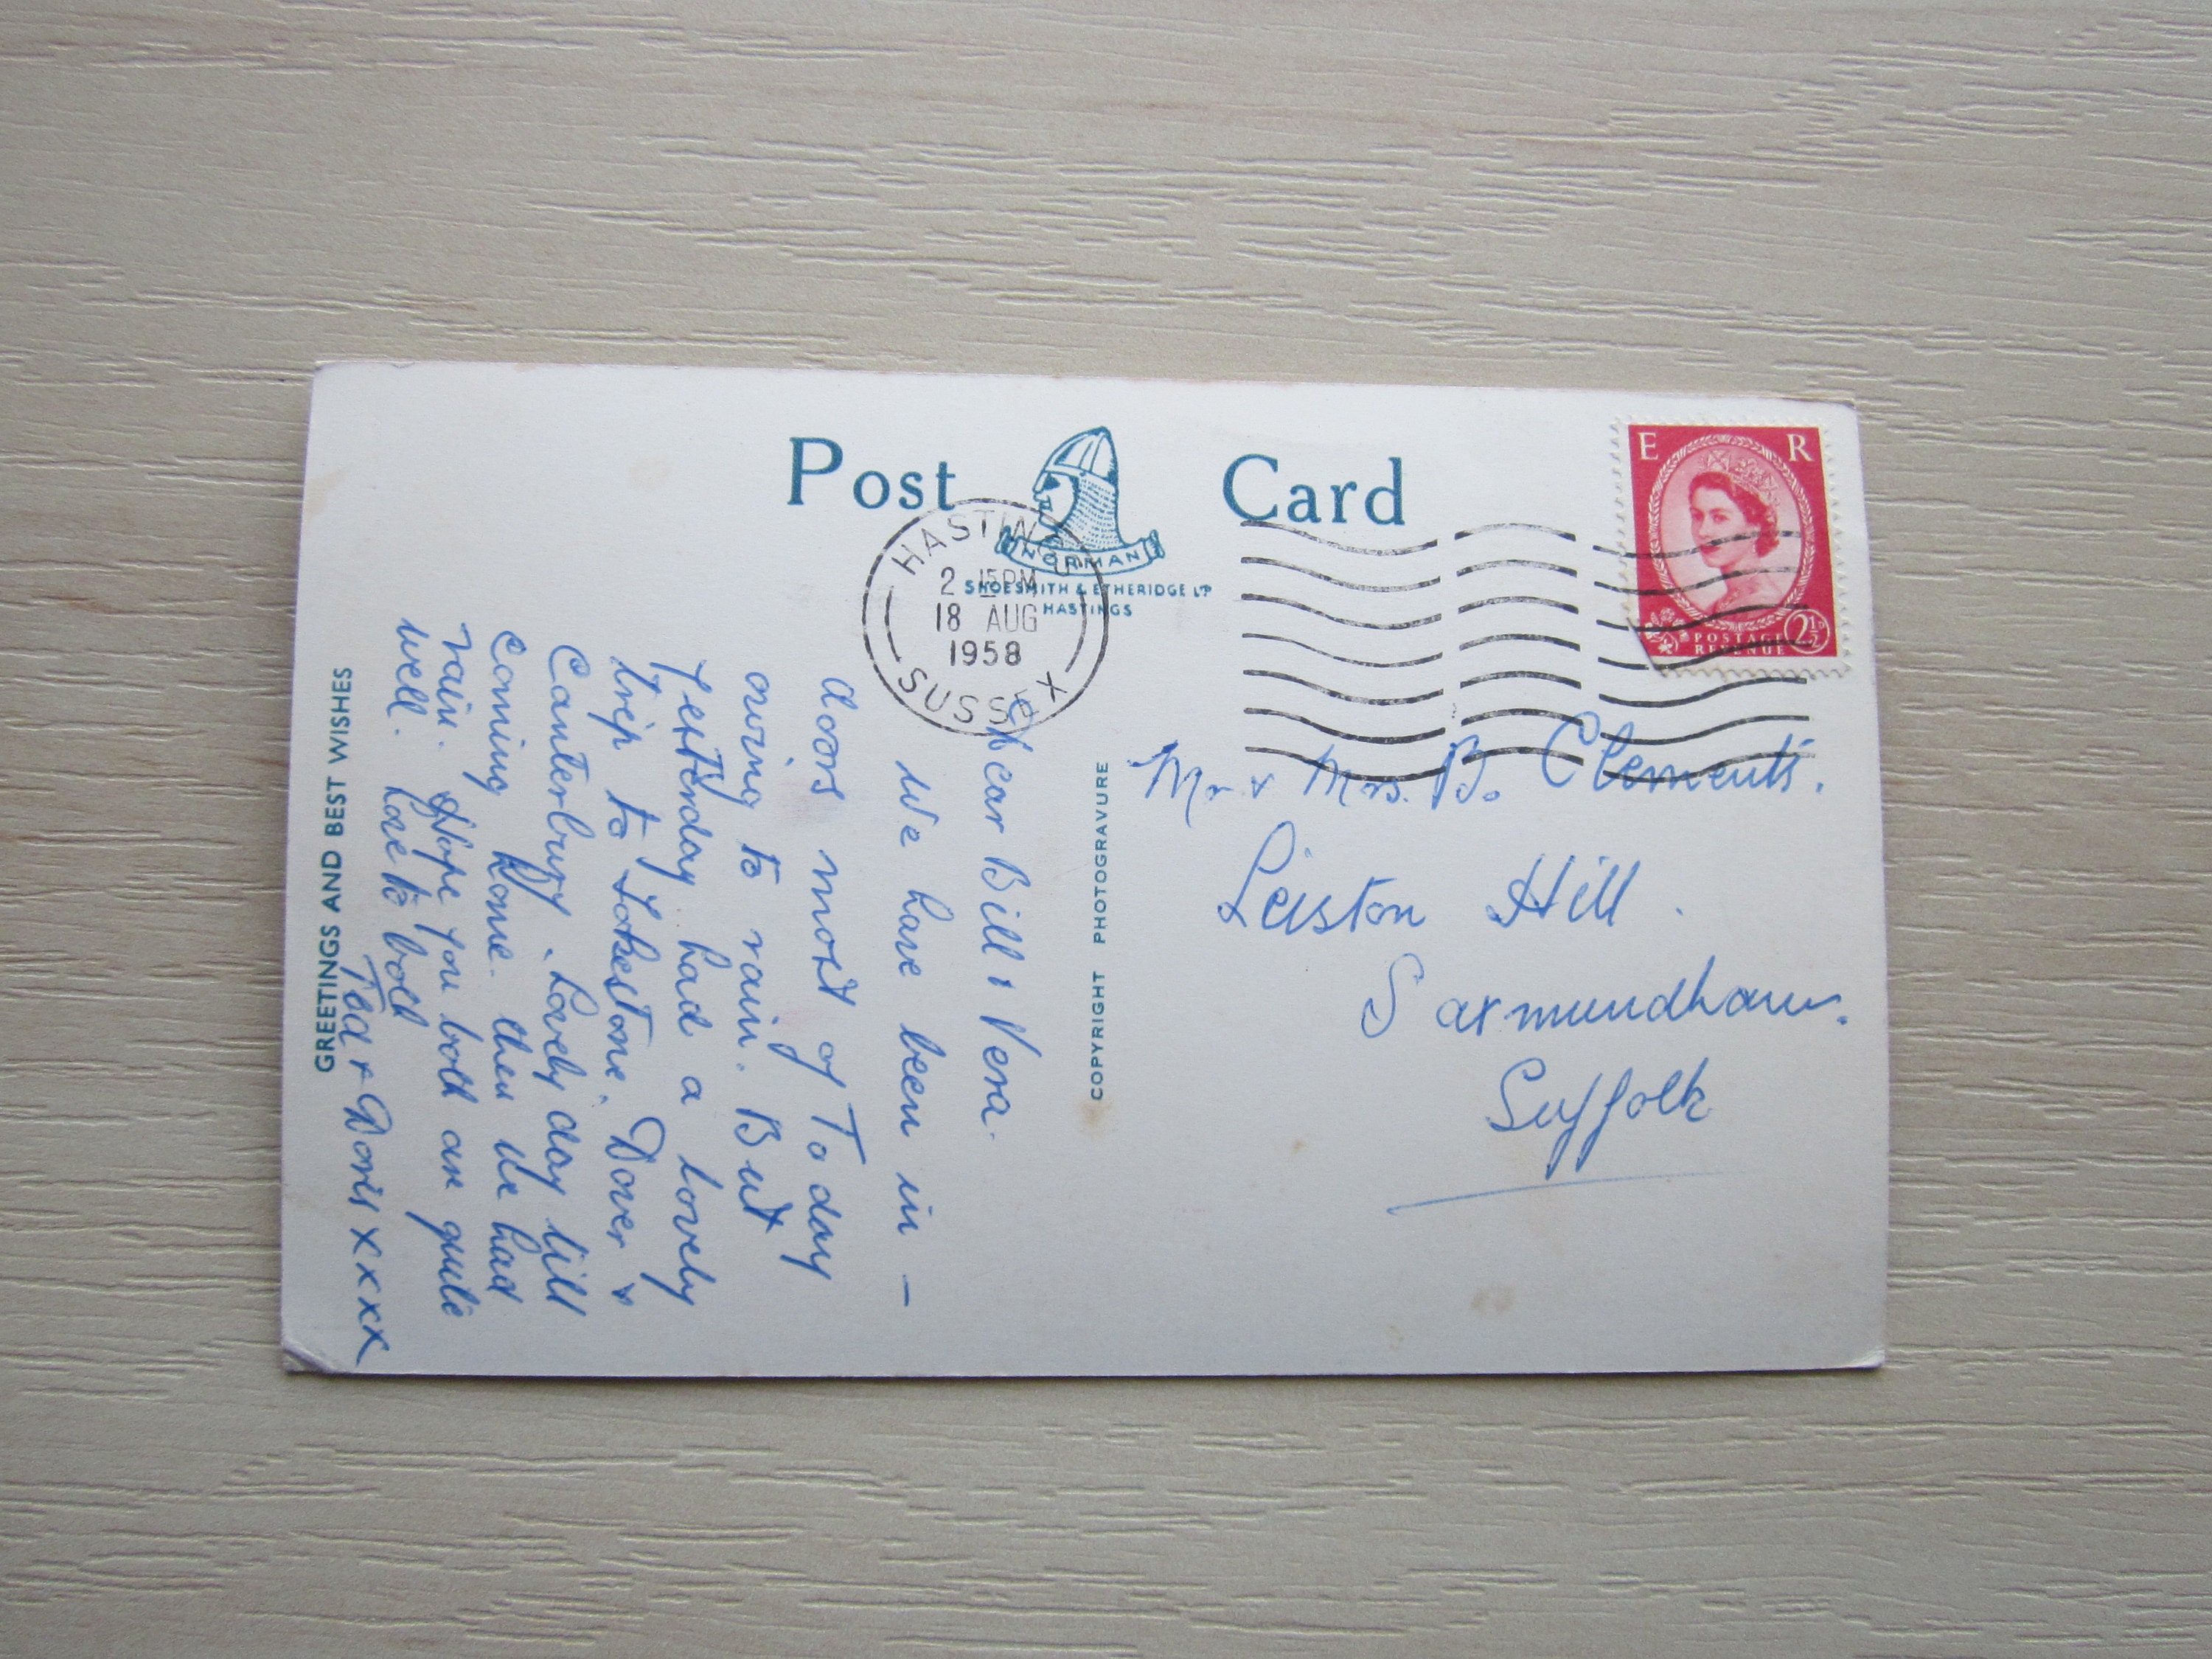 Post Card
NORMAN
SHOESMITH & ETHERIDGE LTD
HASTINGS
HASTINGS
2 15PM
18 AUG
1958
SUSSEX
E R
POSTAGE
REVENUE
2½D
GREETINGS AND BEST WISHES
COPYRIGHT PHOTOGRAVURE
Dear Bill & Vera.
We have been in -
doors most of To day
owing to rain. But
Yesterday had a lovely
trip to Fokestone. Dover &
Canterbury. Lovely day till
coming home. then we had
rain. Hope you both are quite
well. Love to both
Ted & Doris x x x x
Mr & Mrs. B. Clements.
Leiston Hill.
Saxmundham.
Suffolk